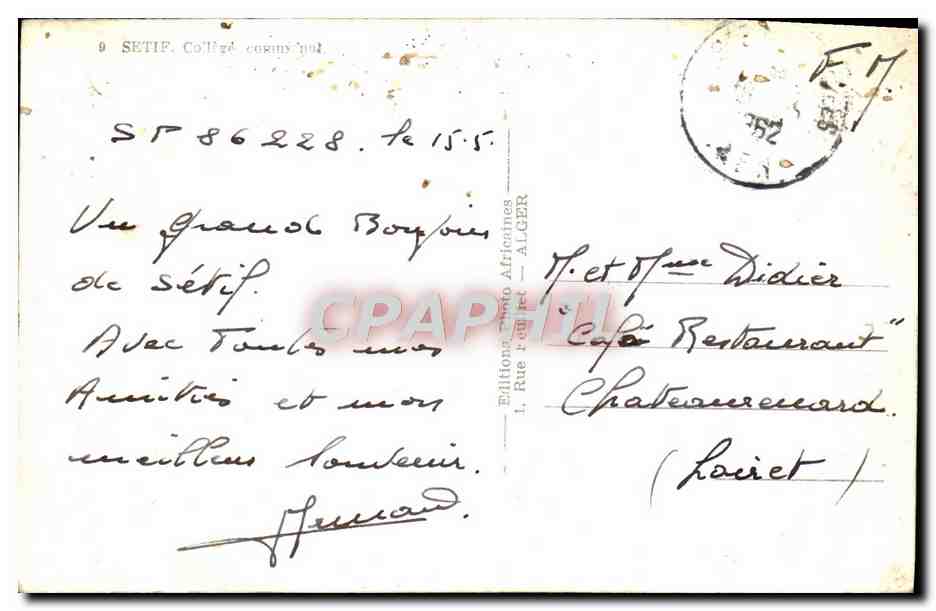 9 SETIF. Collège communal
F M
SP 86228. le 15.5.
Un grand Bonjour
de Sétif.
Avec Toutes mes
Amitiés et mon
meilleur souvenir.
Editions Photo Africaines
1, Rue Feuillet — ALGER
M. et Mme Didier
"Café Restaurant"
Chateaurenard.
(Loiret)
CPAPHIL